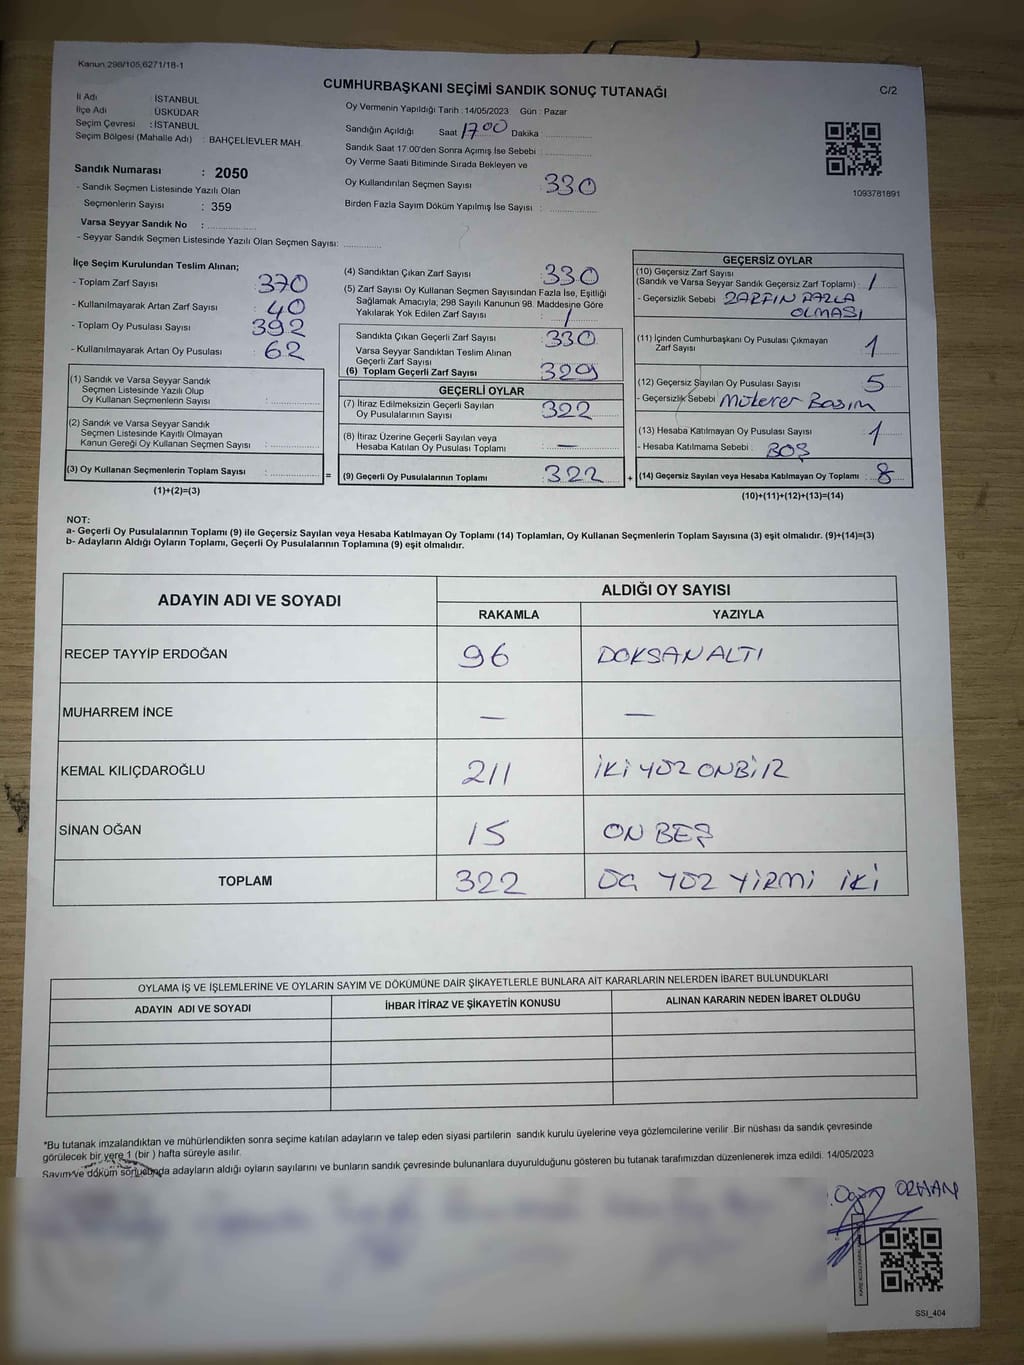 Kanun,298/105,6271/18-1
CUMHURBAŞKANI SEÇİMİ SANDIK SONUÇ TUTANAĞI
C/2
İl Adı İSTANBUL
İlçe Adı ÜSKÜDAR
Seçim Çevresi : İSTANBUL
Seçim Bölgesi (Mahalle Adı) : BAHÇELİEVLER MAH.
Sandık Numarası : 2050
- Sandık Seçmen Listesinde Yazılı Olan
Seçmenlerin Sayısı : 359
Varsa Seyyar Sandık No :
- Seyyar Sandık Seçmen Listesinde Yazılı Olan Seçmen Sayısı:
Oy Vermenin Yapıldığı Tarih : 14/05/2023 Gün : Pazar
Sandığın Açıldığı Saat 17 00 Dakika :
Sandık Saat 17:00'den Sonra Açımış İse Sebebi :
Oy Verme Saati Bitiminde Sırada Bekleyen ve
Oy Kullandırılan Seçmen Sayısı : 330
Birden Fazla Sayım Döküm Yapılmış İse Sayısı :
1093781891
İlçe Seçim Kurulundan Teslim Alınan;
- Toplam Zarf Sayısı : 370
- Kullanılmayarak Artan Zarf Sayısı : 40
- Toplam Oy Pusulası Sayısı : 392
- Kullanılmayarak Artan Oy Pusulası : 62
(1) Sandık ve Varsa Seyyar Sandık
Seçmen Listesinde Yazılı Olup
Oy Kullanan Seçmenlerin Sayısı :
(2) Sandık ve Varsa Seyyar Sandık
Seçmen Listesinde Kayıtlı Olmayan
Kanun Gereği Oy Kullanan Seçmen Sayısı :
(3) Oy Kullanan Seçmenlerin Toplam Sayısı : =
(1)+(2)=(3)
(4) Sandıktan Çıkan Zarf Sayısı : 330
(5) Zarf Sayısı Oy Kullanan Seçmen Sayısından Fazla İse, Eşitliği
Sağlamak Amacıyla; 298 Sayılı Kanunun 98. Maddesine Göre
Yakılarak Yok Edilen Zarf Sayısı : /
Sandıkta Çıkan Geçerli Zarf Sayısı : 330
Varsa Seyyar Sandıktan Teslim Alınan
Geçerli Zarf Sayısı :
(6) Toplam Geçerli Zarf Sayısı : 329
GEÇERLİ OYLAR
(7) İtiraz Edilmeksizin Geçerli Sayılan
Oy Pusulalarının Sayısı : 322
(8) İtiraz Üzerine Geçerli Sayılan veya
Hesaba Katılan Oy Pusulası Toplamı : —
(9) Geçerli Oy Pusulalarının Toplamı : 322 +
GEÇERSİZ OYLAR
(10) Geçersiz Zarf Sayısı
(Sandık ve Varsa Seyyar Sandık Geçersiz Zarf Toplamı) : 1
- Geçersizlik Sebebi : ZARFIN FAZLA
OLMASI
(11) İçinden Cumhurbaşkanı Oy Pusulası Çıkmayan
Zarf Sayısı : 1
(12) Geçersiz Sayılan Oy Pusulası Sayısı : 5
- Geçersizlik Sebebi : Mükerer Basım
(13) Hesaba Katılmayan Oy Pusulası Sayısı : 1
- Hesaba Katılmama Sebebi : BOŞ
(14) Geçersiz Sayılan veya Hesaba Katılmayan Oy Toplamı : 8
(10)+(11)+(12)+(13)=(14)
NOT:
a- Geçerli Oy Pusulalarının Toplamı (9) ile Geçersiz Sayılan veya Hesaba Katılmayan Oy Toplamı (14) Toplamları, Oy Kullanan Seçmenlerin Toplam Sayısına (3) eşit olmalıdır. (9)+(14)=(3)
b- Adayların Aldığı Oyların Toplamı, Geçerli Oy Pusulalarının Toplamına (9) eşit olmalıdır.
ADAYIN ADI VE SOYADI ALDIĞI OY SAYISI
RAKAMLA YAZIYLA
RECEP TAYYİP ERDOĞAN 96 DOKSANALTI
MUHARREM İNCE — —
KEMAL KILIÇDAROĞLU 211 İKİ YÜZ ONBİR
SİNAN OĞAN 15 ON BEŞ
TOPLAM 322 ÜÇ YÜZ YİRMİ İKİ
OYLAMA İŞ VE İŞLEMLERİNE VE OYLARIN SAYIM VE DÖKÜMÜNE DAİR ŞİKAYETLERLE BUNLARA AİT KARARLARIN NELERDEN İBARET BULUNDUKLARI
ADAYIN ADI VE SOYADI İHBAR İTİRAZ VE ŞİKAYETİN KONUSU ALINAN KARARIN NEDEN İBARET OLDUĞU
*Bu tutanak imzalandıktan ve mühürlendikten sonra seçime katılan adayların ve talep eden siyasi partilerin sandık kurulu üyelerine veya gözlemcilerine verilir .Bir nüshası da sandık çevresinde
görülecek bir yere 1 (bir ) hafta süreyle asılır.
Sayım ve döküm sonucunda adayların aldığı oyların sayılarını ve bunların sandık çevresinde bulunanlara duyurulduğunu gösteren bu tutanak tarafımızdan düzenlenerek imza edildi. 14/05/2023
ORHAN
SSI_404